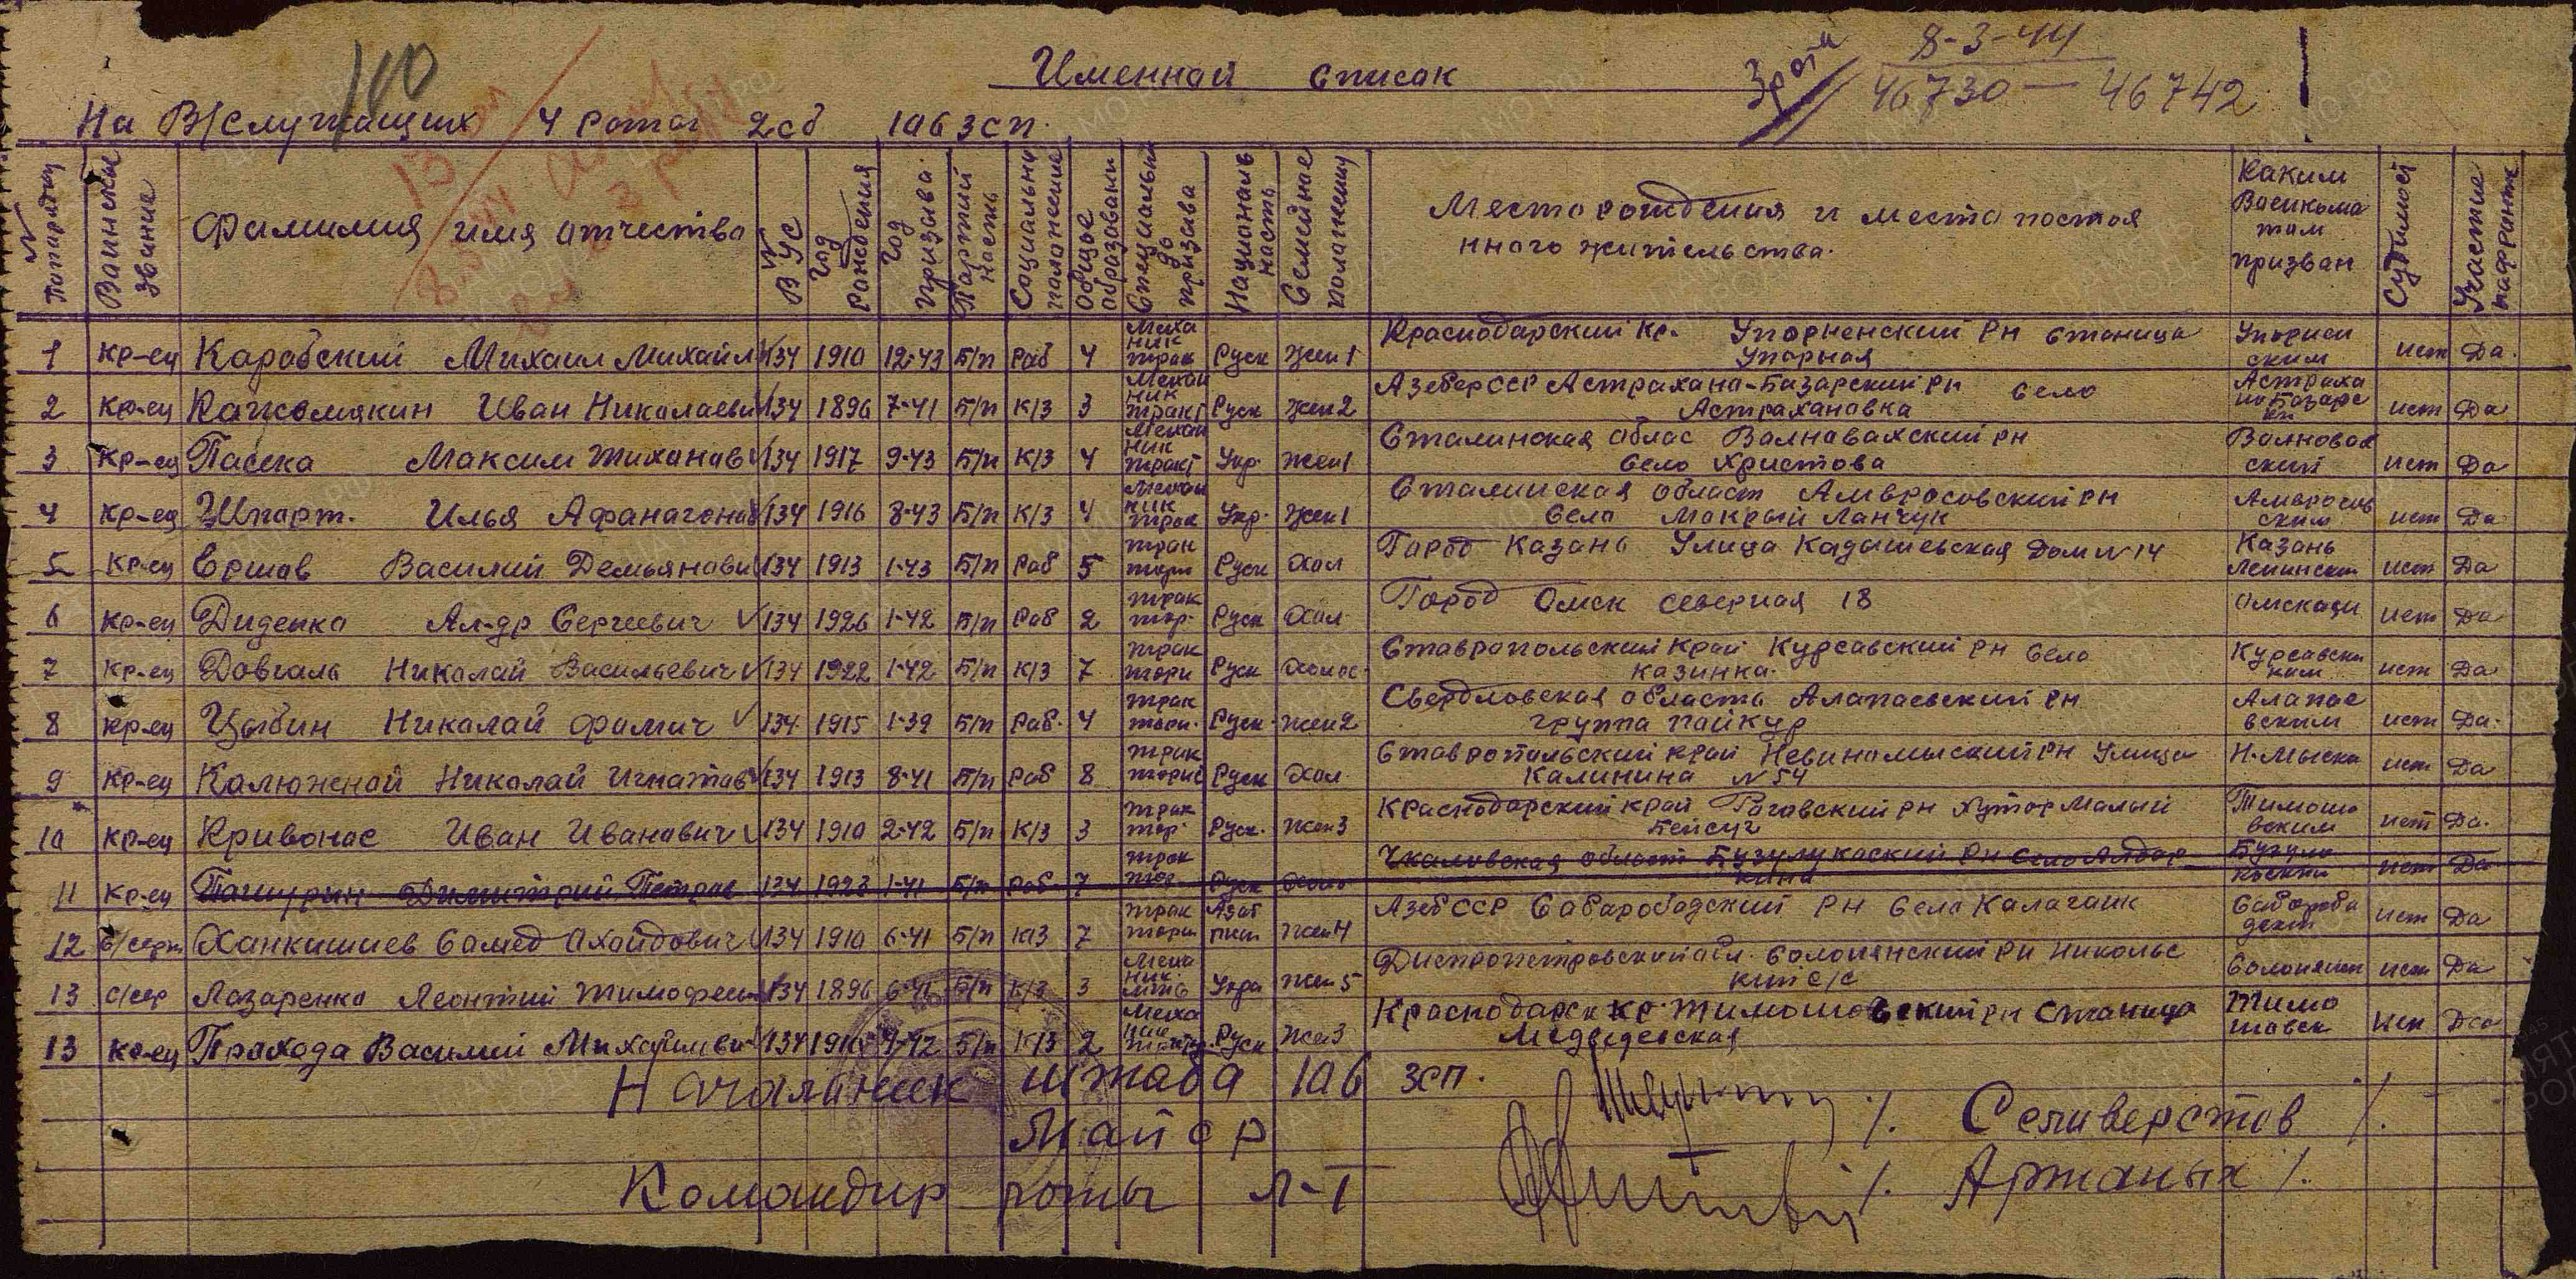 Именной список
8-3-44
46730 — 46742
3 рота
110
На В/служащих 4 роты 2сб 106 зсп.
№ по порядку | Воинское звание | Фамилия имя отчество | № ВУС | Год рождения | Год призыва | Партий ность | Социальн положение | Общее образовани | Специальный до призыва | Националь ность | Семейное положению | Место рождения и место постоя нного жительства. | Каким Воснкома там призван | Судимост | Участие на фронте
1 кр-ец Карабский Михаил Михайл 134 1910 12-43 Б/п Раб 4 Меха ник трак Руск Жен 1 Краснодарский Кр. Упорненский Рн станица Упорная Упорнен ским нет Да.
2 кр-ец Кажомякин Иван Николаеви 134 1896 7-41 Б/п К/З 3 Механ ник тракт Руск Жен 2 Азебер ССР Астрахано-Базарский Рн село Астрахановка Астраха но Базарс нет Да
3 кр-ец Пасека Максим Тиханав 134 1917 9-43 Б/п К/З 4 Механ ник тракт Укр. Жен 1 Сталинская облас Валнавахский рн село Христова Валновах ский нет Да
4 кр-ец Шпарт. Илья Афанагонав 134 1916 8-43 Б/п К/З 4 Механ ник трак Укр. Жен 1 Сталинская област Амвросовский рн село Мокрый Ланчук Амвросов ским нет Да
5 кр-ец Ершов Василий Демьянови 134 1913 1-43 Б/п Раб 5 трак тори Руск Хол Город Казань Улица Кадышевская Дом № 14 Казань Ленинским нет Да
6 кр-ец Диденко Ал-др Сергеевич 134 1926 1-42 Б/п Раб 2 трак тор. Руск Хол. Город Омск северная 18 Омскаци нет Да
7 кр-ец Довгаль Николай Васильевич 134 1922 1-42 Б/п К/З 7 трак тори Руск Холос. Ставропольский Край Курсавский рн село Казинка. Курсавски ним нет Да
8 кр-ец Цыбин Николай Фомич 134 1915 1-39 Б/п Раб. 4 трак тори. Руск. Жен 2 Свердловская область Алапаевский рн группа пайкур Алапае вским нет Да.
9 кр-ец Калюжной Николай Игнатов 134 1913 8-41 Б/п Раб 8 трак торис Руск Хол. Ставропольский край Невиномыский рн Улица Калинина № 54 Н-Мыски нет Да
10 кр-ец Кривонос Иван Иванович 134 1910 2-42 Б/п К/З 3 трак тор. Руск. Жен 3 Краснодарский край Роговский рн хутор Малый Бейсуг Тимошо вским нет Да.
11 кр-ец Пашурин Димитрий Петров 134 1923 1-41 Б/п Раб. 7 трак тор Руск Холо Чкаловская област Бузулукоский рн село Алдар кина Бузуло коским нет Да
12 с/серж Ханкишиев Самед Ахайдович 134 1910 6-41 Б/п К/З 7 трак тори Азаб Жен 4 Азеб ССР Сабарободский Рн села Калагаик Сабороба дским нет Да
13 с/сер Лазаренко Леонтий Тимофеев 134 1896 6-41 Б/п К/З 3 Меха ник. Укра Жен 5 Днепропетровский обл. Солонянский рн Никольс кий с/с Солоняним нет Да
13 кр-ец Прохода Василий Михайлови 134 4-42 Б/п К/З 2 Меха ник Руск Жен 3 Краснодарск кр. Тимошовский рн станица Медведевская Тимо шовск нет Да
Начальник штаба 106 зсп.
Майор /. Селиверстов /.
Командир роты л-т /. Аржаных /.